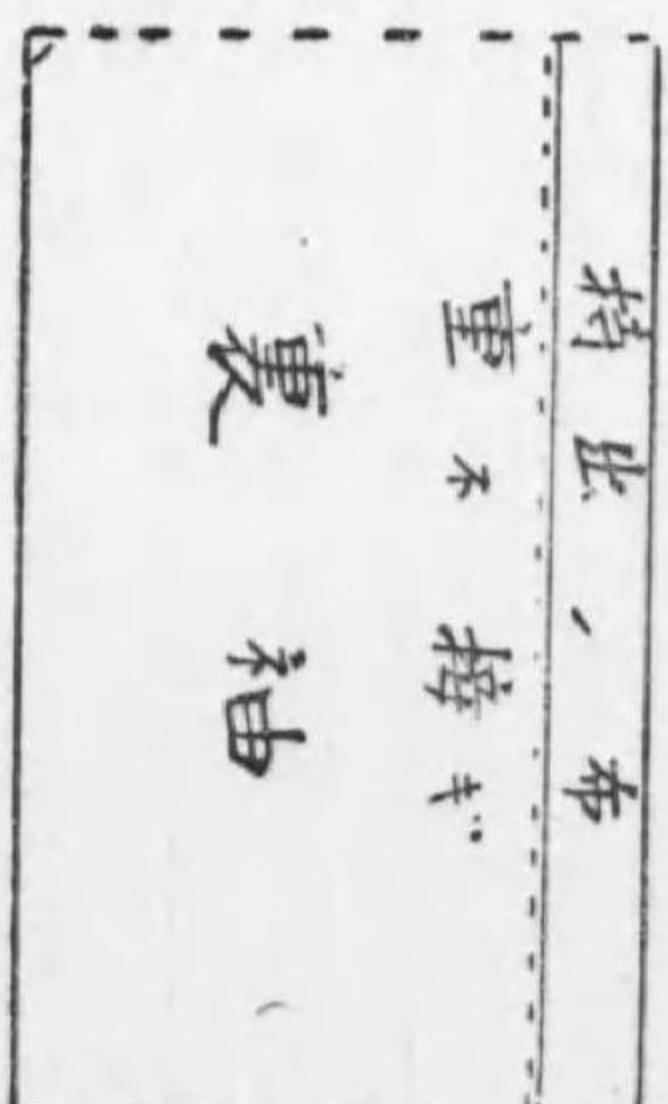 持出ノ布
重ネ接ギ
裏袖